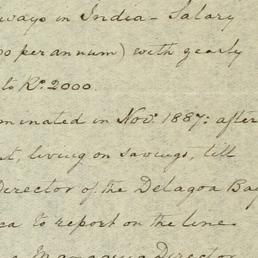 ways in India - Salary
00 per annum) with yearly
to Rs. 2000.
minated in Novr. 1887: after
t, living on savings, till
Director of the Delagoa Bay
ca to report on the line
a Managing Director